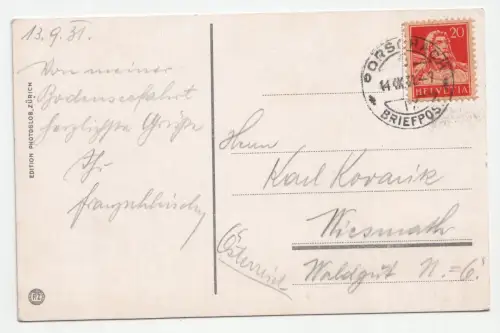 13.9.31.
Von meiner
Bodenseefahrt
herzlichste Grüße
Ihr
EDITION PHOTOGLOB, ZÜRICH
20
HELVETIA
RORSCHACH
BRIEFPOST
Herrn
Karl Kovarik
Wiesmath
Österreich
Waldgut N.=6.